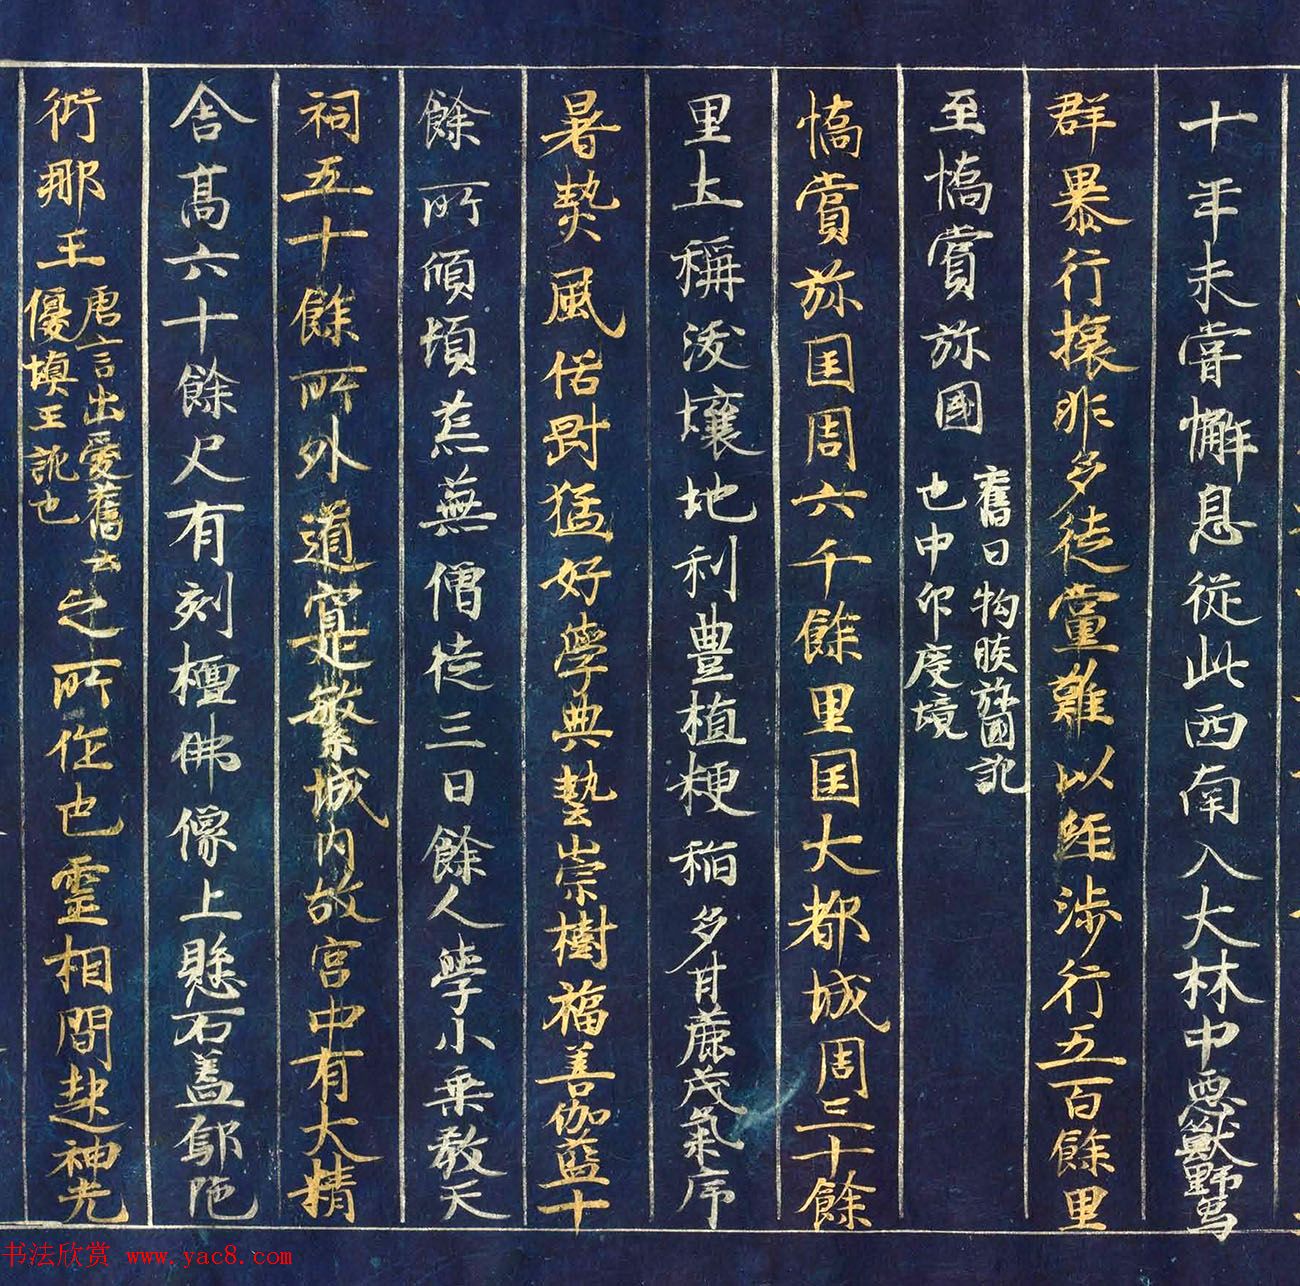 十年未甞懈息從此西南入大林中惡獸野馬
群暴行攘非多徒黨難以經涉行五百餘里
至憍賞弥國
舊曰拘睒弥國訛
也中印度境
憍賞弥国周六千餘里国大都城周三十餘
里土稱沃壤地利豊植粳稲多甘蔗茂氣序
暑熱風俗剛猛好學典藝崇樹福善伽藍十
餘所傾頓荒蕪僧徒三百餘人學小乗教天
祠五十餘所外道寔繁城内故宮中有大精
舎髙六十餘尺有刻檀佛像上懸石盖鄔陁
衍那王
唐言出愛舊云
優填王訛也
之所作也靈相間起神光
书法欣赏 www.yac8.com